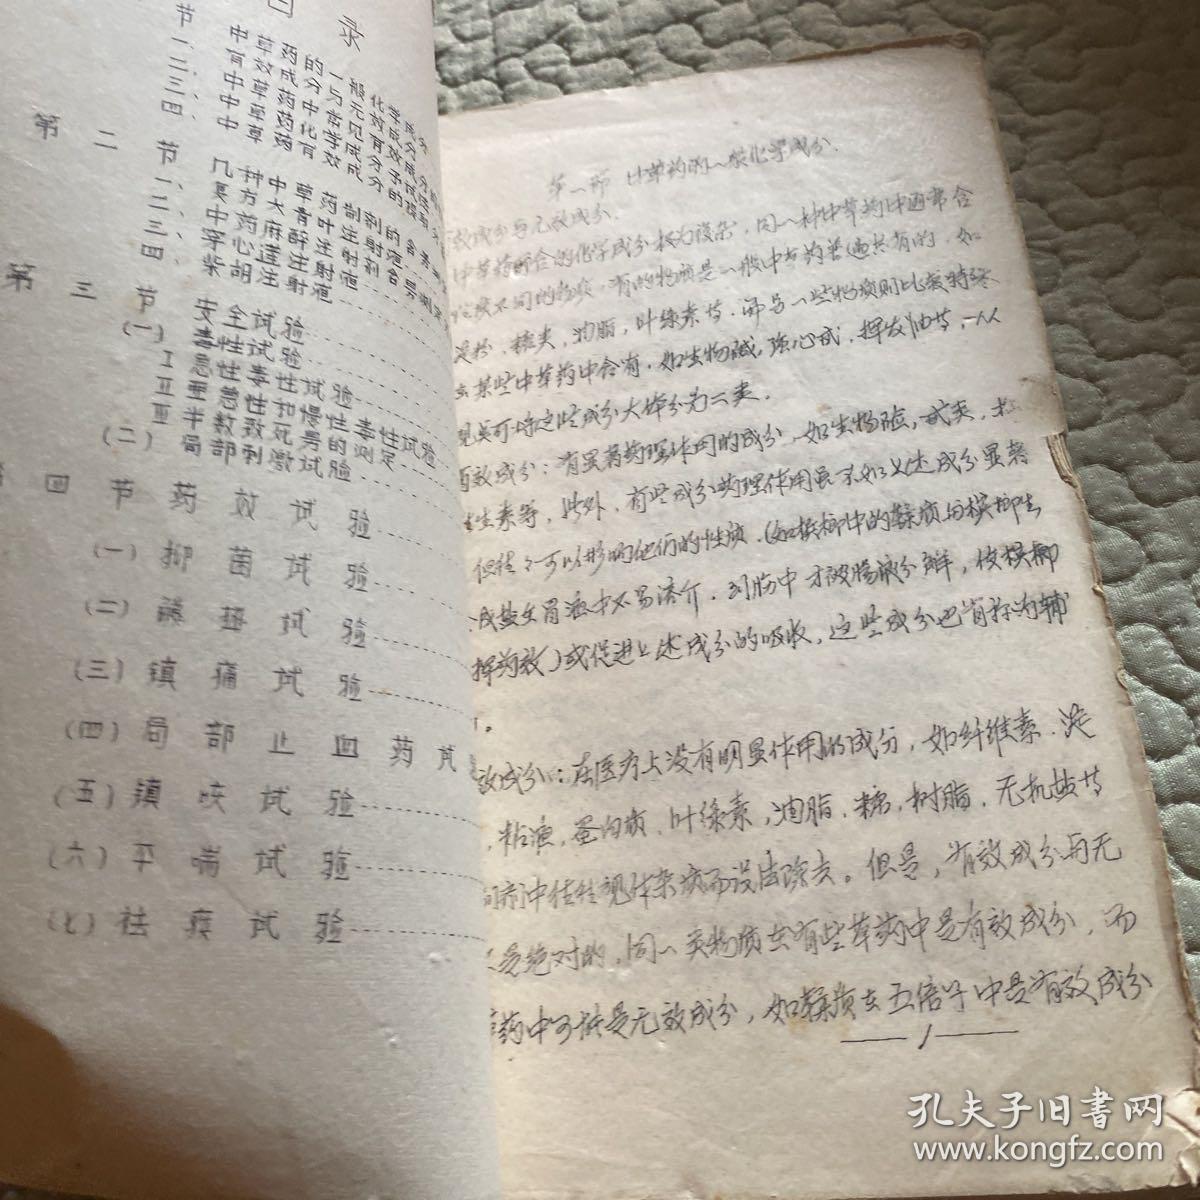 目录
节
一、中草药的一般化学成分
二、有效成分与无效成分
三、中草药中常见
四、中草药化学成分
第二节 几种中草药制剂的含
一、复方大青叶注射
二、中药麻醉注射
三、穿心莲注射
四、柴胡注射液
第三节 安全试验
(一) 毒性试验
I 急性毒性试验
II 亚急性和慢性毒性试验
III 半数致死量的测定
(二) 局部刺激试验
四节 药效试验
(一) 抑菌试验
(二) 试验
(三) 镇痛试验
(四) 局部止血药
(五) 镇咳试验
(六) 平喘试验
(七) 祛痰试验
第一节 中草药的一般化学成分.
效成分与无效成分.
中草药所含的化学成分极为复杂，同一种中草药中通常含
不同的物质，有的物质是一般中草药普遍共有的，如
粉，糖类，油脂，叶绿素等。而另一些物质则比较特殊
某些中草药中含有，如生物碱，强心甙，挥发油等，从
观点可将这些成分大体分为二类.
有效成分：有显著药理作用的成分，如生物碱，甙类，
生素等，此外，有些成分药理作用虽不如上述成分显著
但往往可以影响他们的性质.(如槟榔中的鞣质与槟榔
成盐在胃液中不易溶介，到肠中才被肠碱分解，使槟榔
挥药效)或促进上述成分的吸收，这些成分也有称为辅
。
效成分：在医疗上没有明显作用的成分，如纤维素.淀
，粘液，蛋白质，叶绿素，油脂，糖，树脂，无机盐等
剂中往往视作杂质而设法除去。但是，有效成分与无
是绝对的，同一类物质在有些草药中是有效成分，而
草药中可能是无效成分，如鞣质在五倍子中是有效成分
— 1 —
孔夫子旧书网
www.kongfz.com